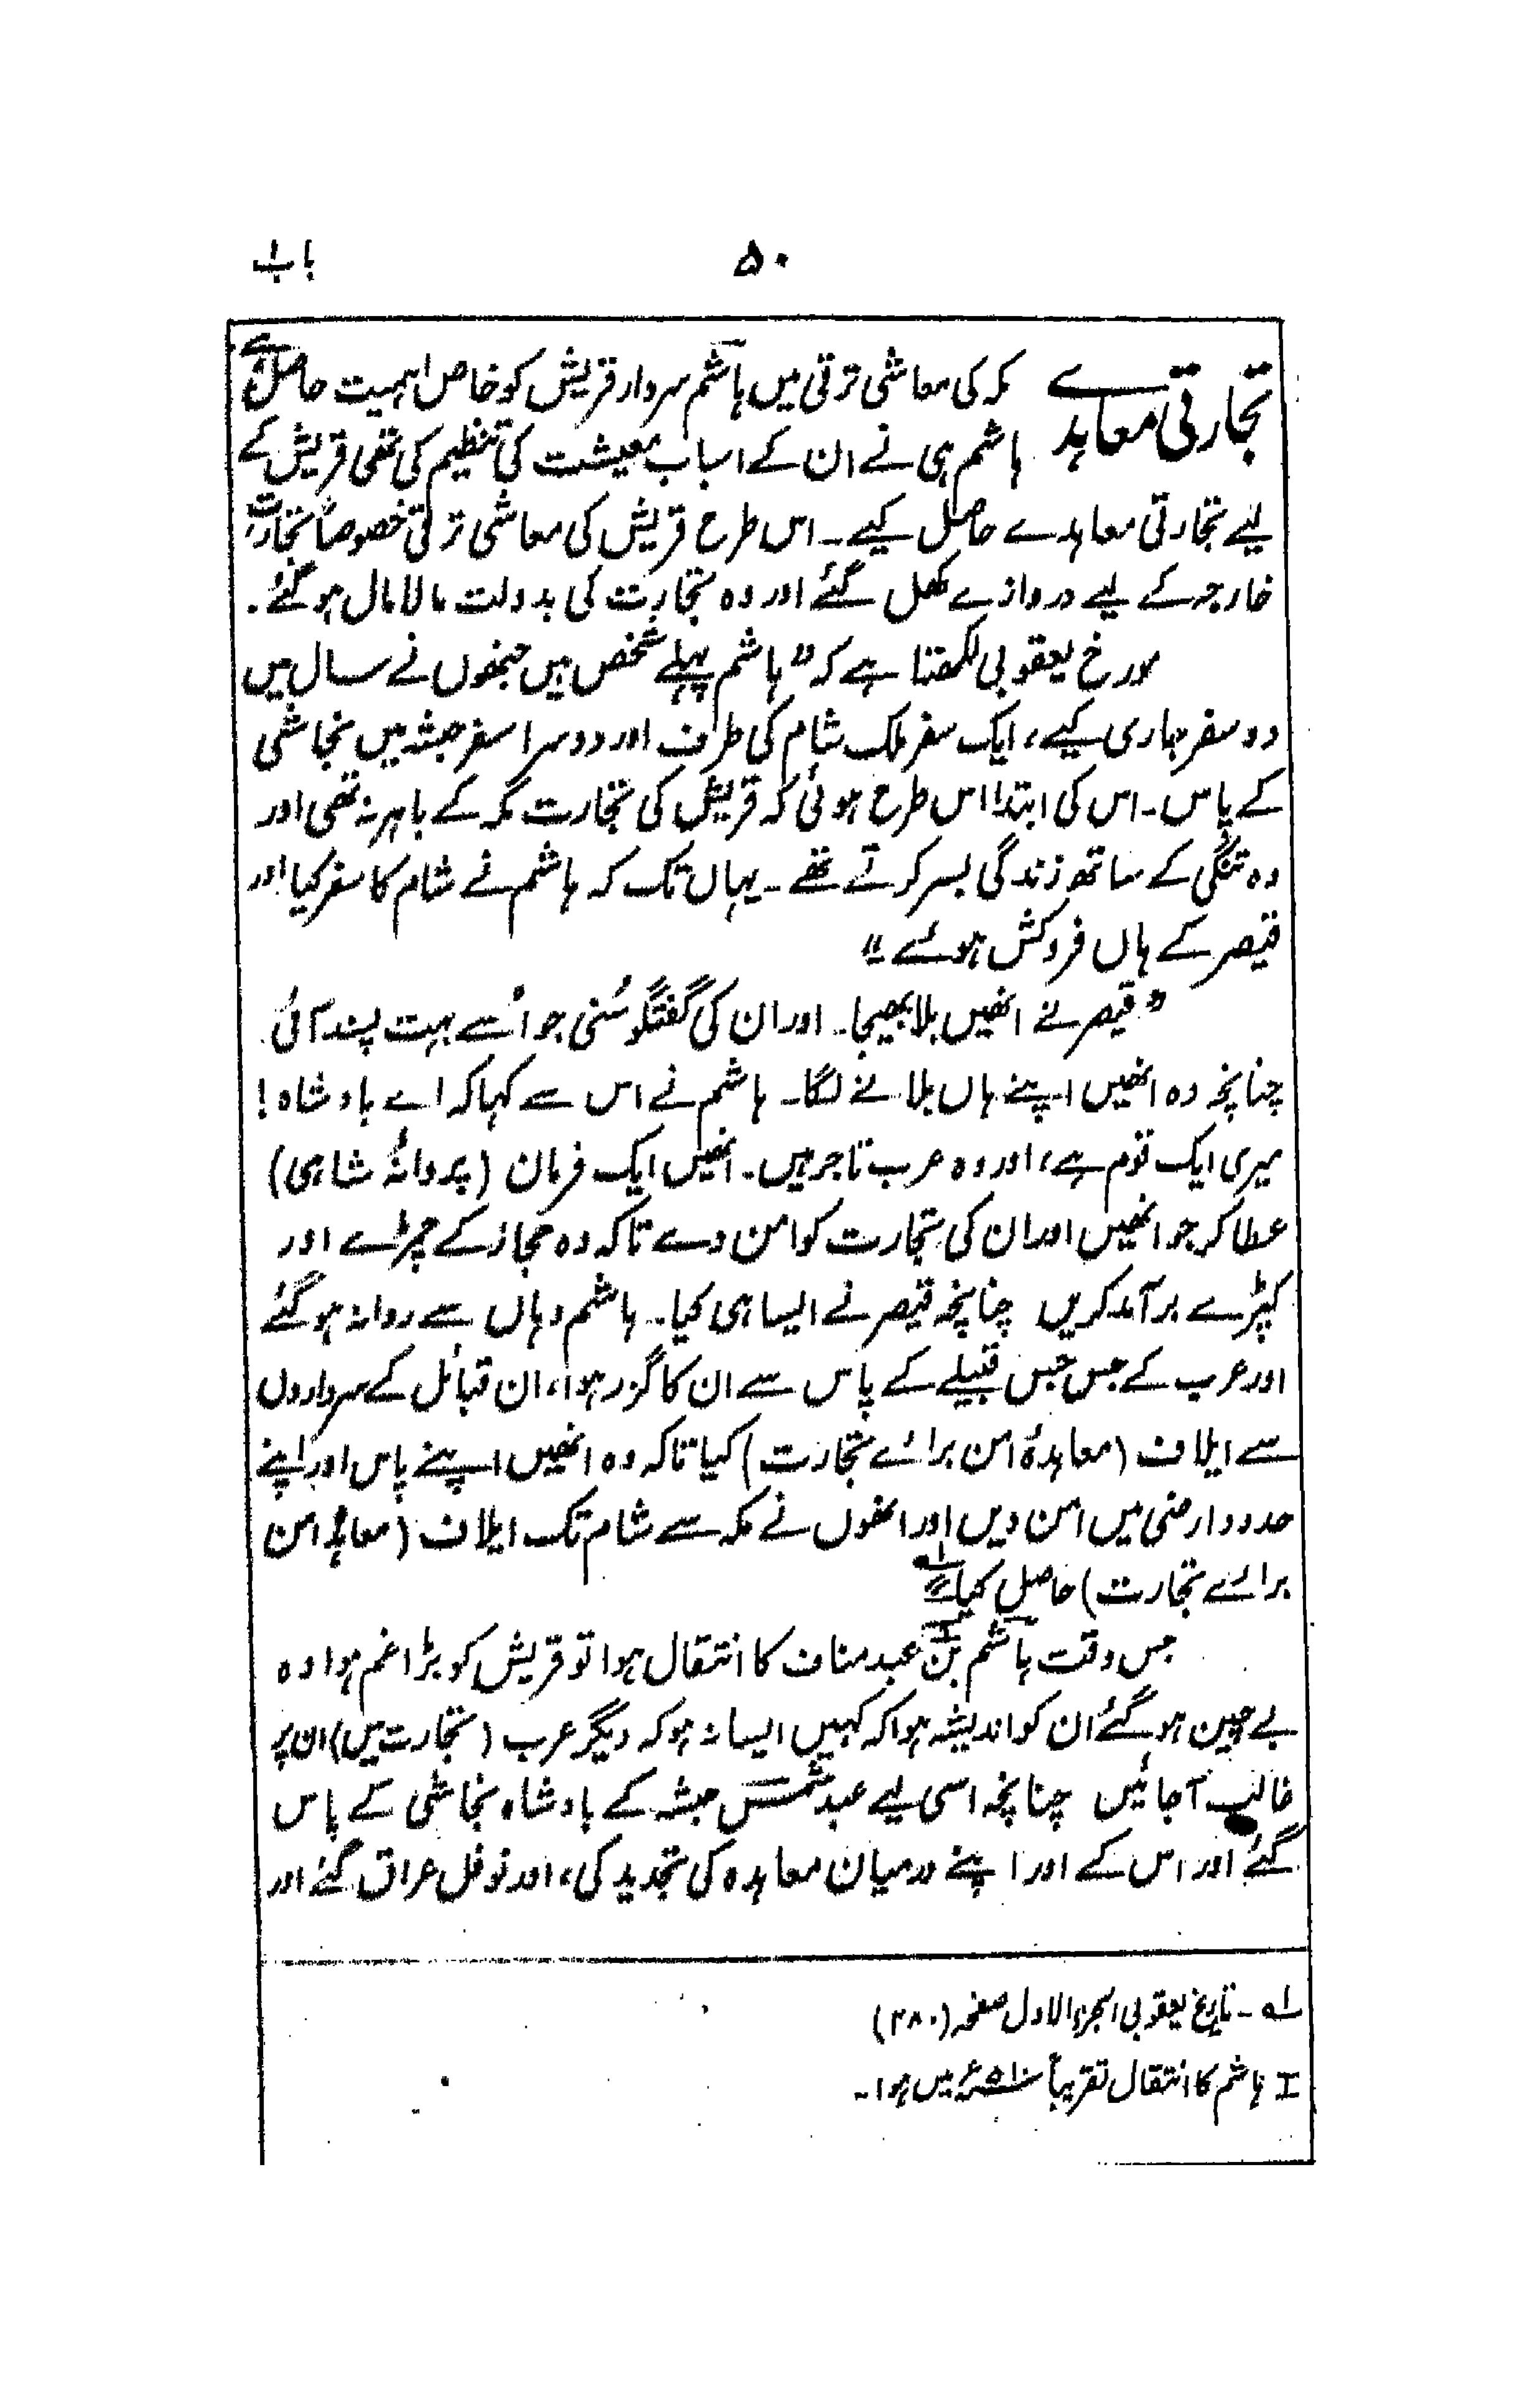 باب ۱
۵۰
تجارتی معاہدے
مکہ کی معاشی ترقی میں ہاشم سردار قریش کو خاص اہمیت حاصل ہے
ہاشم ہی نے ان کے اسباب معیشت کی تنظیم کی تھی قریش کے
لیے تجارتی معاہدے حاصل کیے۔ اس طرح قریش کی معاشی ترقی خصوصاً تجارت
خارجہ کے لیے دروازے کھل گئے اور وہ تجارت کی بدولت مالا مال ہو گئے۔
مورخ یعقوبی لکھتا ہے کہ "ہاشم پہلے شخص ہیں جنھوں نے سال میں
دو سفر جاری کیے، ایک سفر ملک شام کی طرف اور دوسرا سفر حبشہ میں نجاشی
کے پاس۔ اس کی ابتدا اس طرح ہوئی کہ قریش کی تجارت مکہ کے باہر نہ تھی اور
وہ تنگی کے ساتھ زندگی بسر کرتے تھے۔ یہاں تک کہ ہاشم نے شام کا سفر کیا اور
قیصر کے ہاں فروکش ہوئے"
"قیصر نے انھیں بلا بھیجا۔ اور ان کی گفتگو سُنی جو اُسے بہت پسند آئی
چنانچہ وہ انھیں اپنے ہاں بلانے لگا۔ ہاشم نے اس سے کہا کہ اے بادشاہ!
میری ایک قوم ہے، اور وہ عرب تاجر ہیں۔ انھیں ایک فرمان (پروانۂ شاہی)
عطا کر جو انھیں اور ان کی تجارت کو امن دے تاکہ وہ حجاز کے چمڑے اور
کپڑے برآمد کریں چنانچہ قیصر نے ایسا ہی کیا۔ ہاشم وہاں سے روانہ ہو گئے
اور عرب کے جس جس قبیلے کے پاس سے ان کا گزر ہوا، ان قبائل کے سرداروں
سے ایلاف (معاہدۂ امن برائے تجارت) کیا تاکہ وہ انھیں اپنے پاس اور اپنے
حدود ارضی میں امن دیں اور انھوں نے مکہ سے شام تک ایلاف (معاہدۂ امن
برائے تجارت) حاصل کیا"۱؎
جس وقت ہاشم بن عبد مناف I کا انتقال ہوا تو قریش کو بڑا غم ہوا وہ
بے چین ہو گئے ان کو اندیشہ ہوا کہ کہیں ایسا نہ ہو کہ دیگر عرب (تجارت میں) ان پر
غالب آ جائیں چنانچہ اسی لیے عبد شمس حبشہ کے بادشاہ نجاشی کے پاس
گئے اور اس کے اور اپنے درمیان معاہدہ کی تجدید کی، اور نوفل عراق گئے اور
۱؎۔ تاریخ یعقوبی الجزء الاول صفحہ (۲۸۰)
I ہاشم کا انتقال تقریباً ۵۱۰ء میں ہوا۔